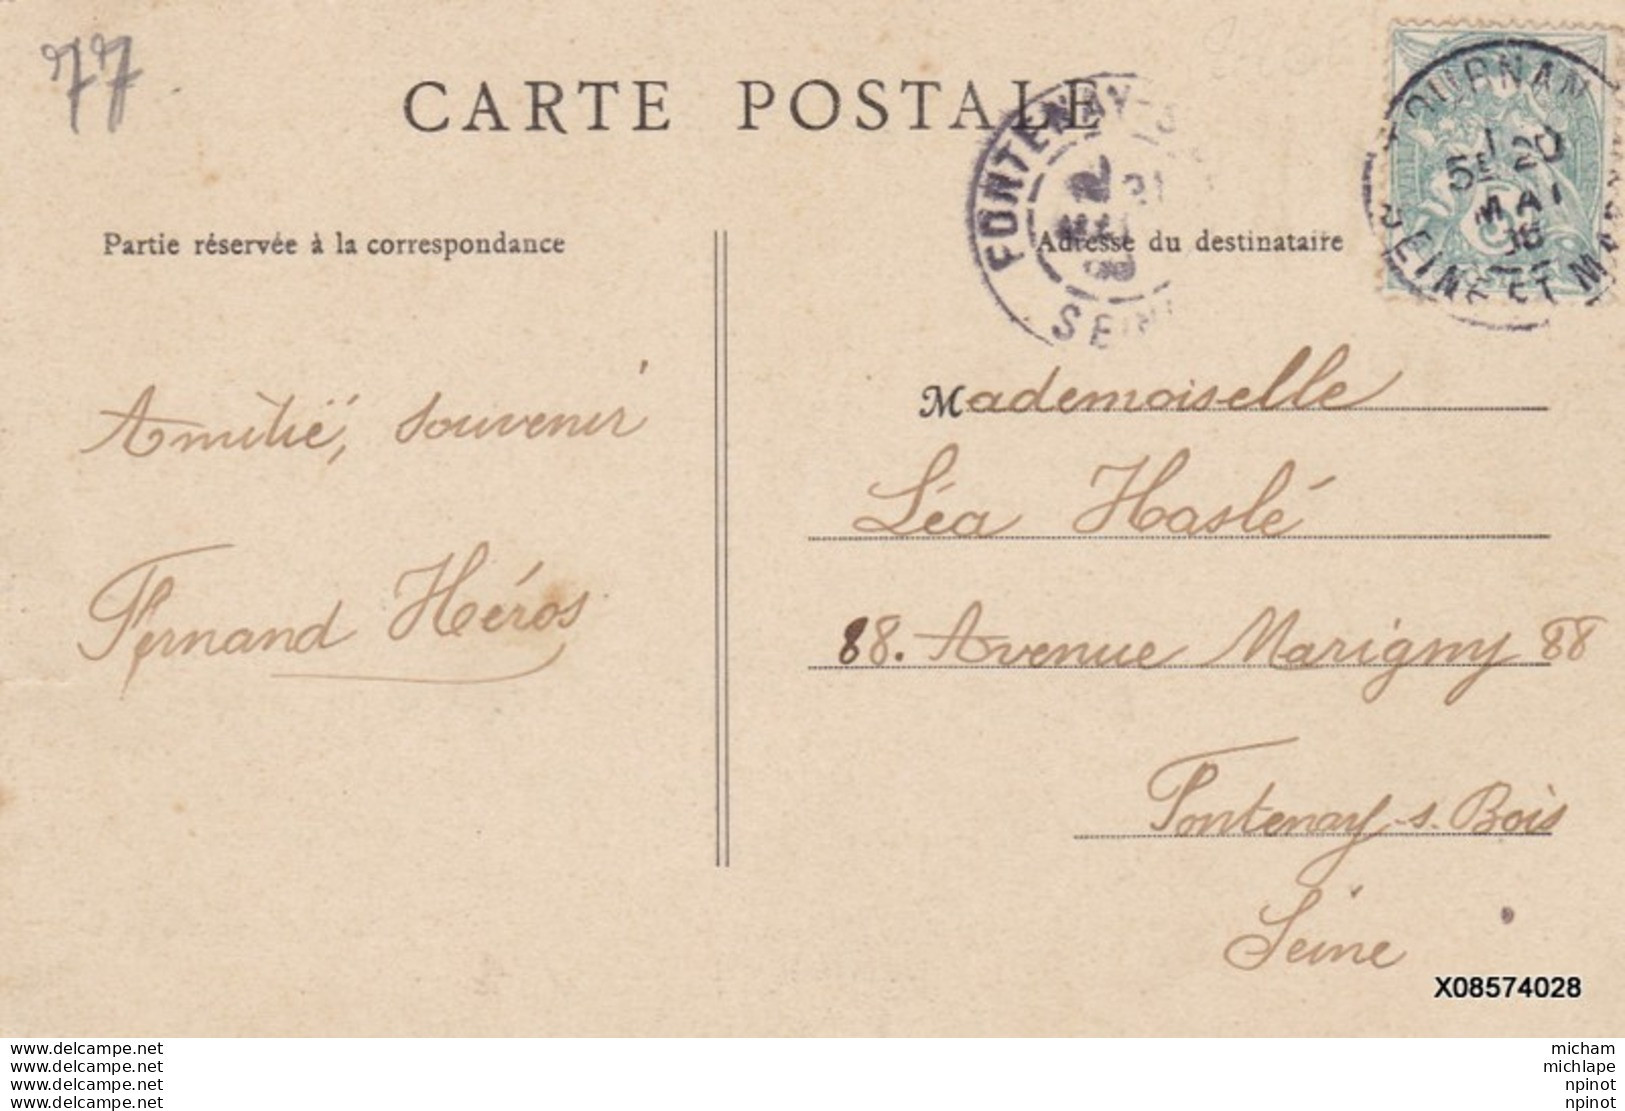 77
CARTE POSTALE
FONTENAY-S
SEINE
TOURNAN
5E 20
MAI
SEINE ET MARNE
Partie réservée à la correspondance
Adresse du destinataire
Amitië, souvenir
Fernand Héros
Mademoiselle
Léa Haslé
88. Avenue Marigny 88
Fontenay-s-Bois
Seine
X08574028
www.delcampe.net
www.delcampe.net
www.delcampe.net
www.delcampe.net
micham
michlape
npinot
npinot